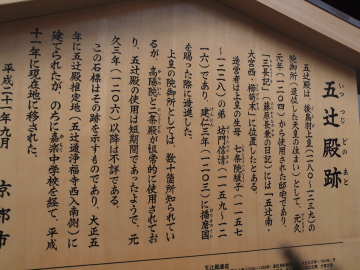 五辻殿跡
いつつじどのあと
五辻殿は、後鳥羽上皇(一一八〇~一二三九)の
院御所(退位した天皇の住まい)として、元久
元年(一二〇四)から使用された邸宅であり、
『三長記』(藤原長兼の日記)には「五辻南・
大宮西・櫛笥末」に位置したとある。
造営者は上皇の生母 七条院殖子(一一五七
~一二二八)の弟 坊門信清(一一五九~一二
一六)であり、建仁三年(一二〇三)に播磨国
を賜った際に造進した。
上皇の院御所としては、数十箇所知られてい
るが、高陽院と二条殿が日常的に使用されてお
り、五辻殿の使用は短期間であったようで、元
久三年(一二〇六)以降は不詳である。
この石標はその跡を示すものであり、大正五
年に五辻殿推定地(五辻通浄福寺西入南側)に
建てられたが、のちに嘉楽中学校を経て、平成
十一年に現在地に移された。
平成二十一年九月 京都市